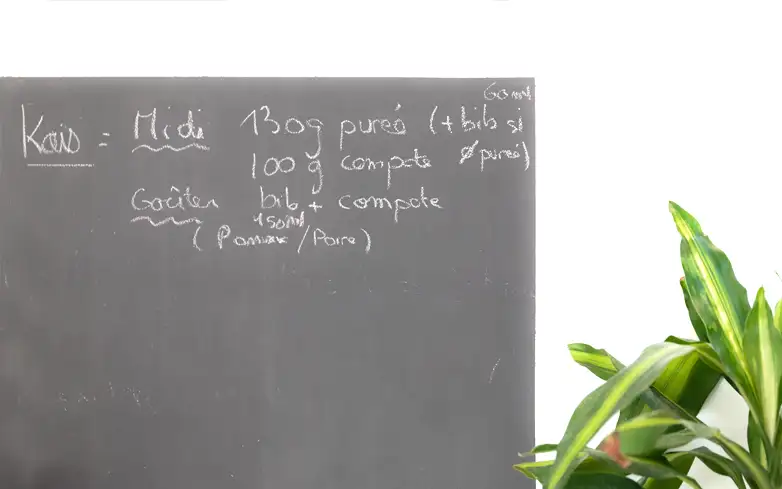 60ml
Kaïs = Midi 130g pureé (+ bib si
100g compote Ø pureé)
Goûter bib + compote
150ml
(Pomme/Poire)